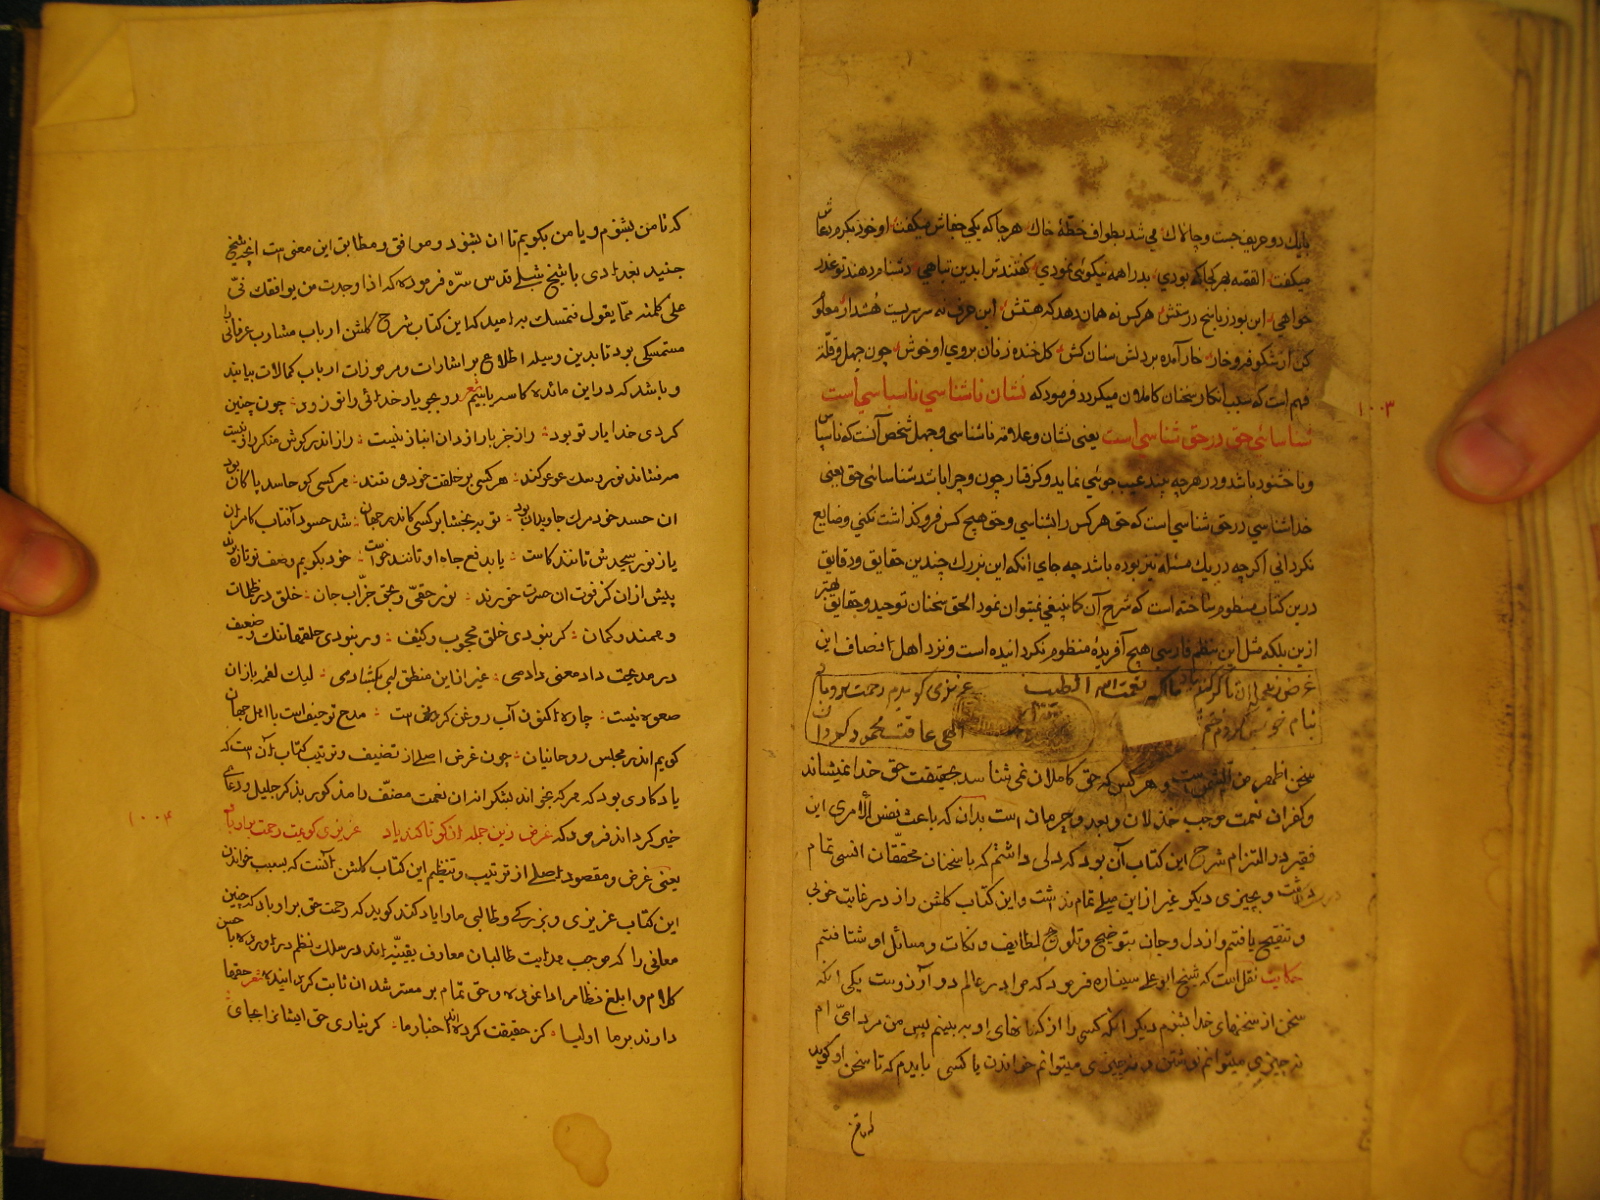 بایک دو حریف جست و چالاک می شد بطواف خطۀ خاک هر جا که یکی جفاش میکفت او خود بکرم دعاش
میکفت القصه هر کجا که بودی بد را همه نیکوئی نمودی کفتند ترا بدین تباهی دشنام دهند تو عذر
خواهی این بود زبا سخ درستش هر کس نه همان دهد که هستش این حرف نه سرسریست هشدار
کل خنده زنان بروی او خوش چون جهل و قلة
فهم است که سبب انکار سخنان کاملان میکردد فرمود که نشان ناشناسی ناسپاسی است
شناسائی حق در حق شناسی است یعنی نشان و علامة ناشناسی و جهل شخص آنست که ناسپاس
و ناخشنود باشد و در هر چه بیند عیب جوئی نماید و کرفتار چون و چرا باشد شناسائی حق یعنی
خداشناسی در حق شناسی است که حق هر کس را بشناسی و حق هیچ کس فرو کذاشت نکنی و ضایع
نکردانی اکر چه در یک مسئله نیز بوده باشد چه جای آنکه این بزرک چندین حقایق و دقایق
درین کتاب منظوم ساخته است که شرح آن کما ینبغی نمیتوان نمود الحق سخنان توحید و حقایق بهتر
ازین بلکه مثل این بنظم فارسی هیچ آفریده منظوم نکردانیده است و نزد اهل انصاف این
عزیزی کویدم رحمت برو باد
بنام خویش کردم ختم الهی عاقبت محمود کردان
سخن اظهر من الشمس است و هر کس که حق کاملان نمی شناسد بحقیقت حق خدا نمیشناسد
و کفران نعمت موجب خذلان و بعد و حرمان است بدان که باعث نفس الامری این
فقیر در التزام شرح این کتاب آن بود که دلی داشتم که با سخنان محققان انسی تمام
داشت و بچیزی دیکر غیر از این میلی تمام نداشت و این کتاب کلشن راز در غایت خوبی
و تنقیح یافتم و از دل و جان بتوضیح و تلویح لطایف و نکات و مسائل او شتافتم
حکایت نقل است که شیخ ابو علی سیاه فرمود که مرا در عالم دو آرزوست یکی آنکه
سخن از سخنهای خدا بشنوم دیکر آنکه کسی را از کسانهای او به بینم پس من مرد امی ام
نه چیزی میتوانم نوشتن و نه چیزی میتوانم خواندن یا کسی بایدم که تا سخن او کوید
که تا من بشنوم و یا من بکویم تا آن بشنود و موافق و مطابق این معنی است آنچه شیخ
جنید بغدادی با شیخ شبلی قدس سره فرموده که اذا وجدت من یوافقک فی
علی کلمة مما یقول فتمسک به امید که این کتاب شرح کلشن ارباب مشارب عرفانی را
مستمسکی بود تا بدین وسیله اطلاع بر اشارات و مرموزات ارباب کمالات بیابند
و باشد که در این مائده کاسه چون چنین
کردی خدا یار تو بود راز جز با رازدان انباز نیست راز اندر کوش منکر راز نیست
مه فشاند نور و سک عوعو کند هر کسی بر خلقت خود می تند هر کسی کو حاسد پاکان بود
آن حسد خود مرک جاویدان بود تو ببخشا بر کسی کاندر جهان شد حسود آفتاب کامران
یا ز نور بیحدش تانند کاست یا بدفع جاه او تانند خواست خود بکویم وصف تو تا ره برند
پیش از آن کز فوت آن حسرت خورند نور حقی و بحق جذاب جان خلق در ظلمات
وهمند و کمان کر نبودی خلق محجوب و کثیف ور نبودی حلقها تنک و ضعیف
در مدیحت داد معنی دادمی غیر از این منطق لبی بکشادمی لیک لقمه بازان
صعوه نیست چاره اکنون آب روغن کردنی ست مدح تو حیف است با اهل جهان
کویم اندر مجلس روحانیان چون غرض اصلی از تصنیف و ترتیب کتاب آن است که
یادکاری بود که هر که بخواند بشکرانه آن نعمت مصنف را مذکور بذکر جلیل و دعای
خیر کرداند فرمود که غرض زین جمله آن کو تا کند یاد عزیزی کویدت رحمت بر او باد
یعنی غرض و مقصود اصلی از ترتیب و تنظیم این کتاب کلشن آنست که بسبب خواندن
این کتاب عزیزی و بزرکی و طالبی ما را یاد کند کوید که رحمت حق بر او باد که چنین
معانی را که موجب هدایت طالبان معارف یقینیه اند در سلک نظم در آورده با حسن
کلام و ابلغ نظام ادا نموده و حق تمام بر مسترشدان ثابت کردانیده شعر حقها
دارند بر ما اولیا کز حقیقت کرده اند اخبار ما کر نیاری حق ایشان را بجای
۱۰۰۳
۱۰۰۴